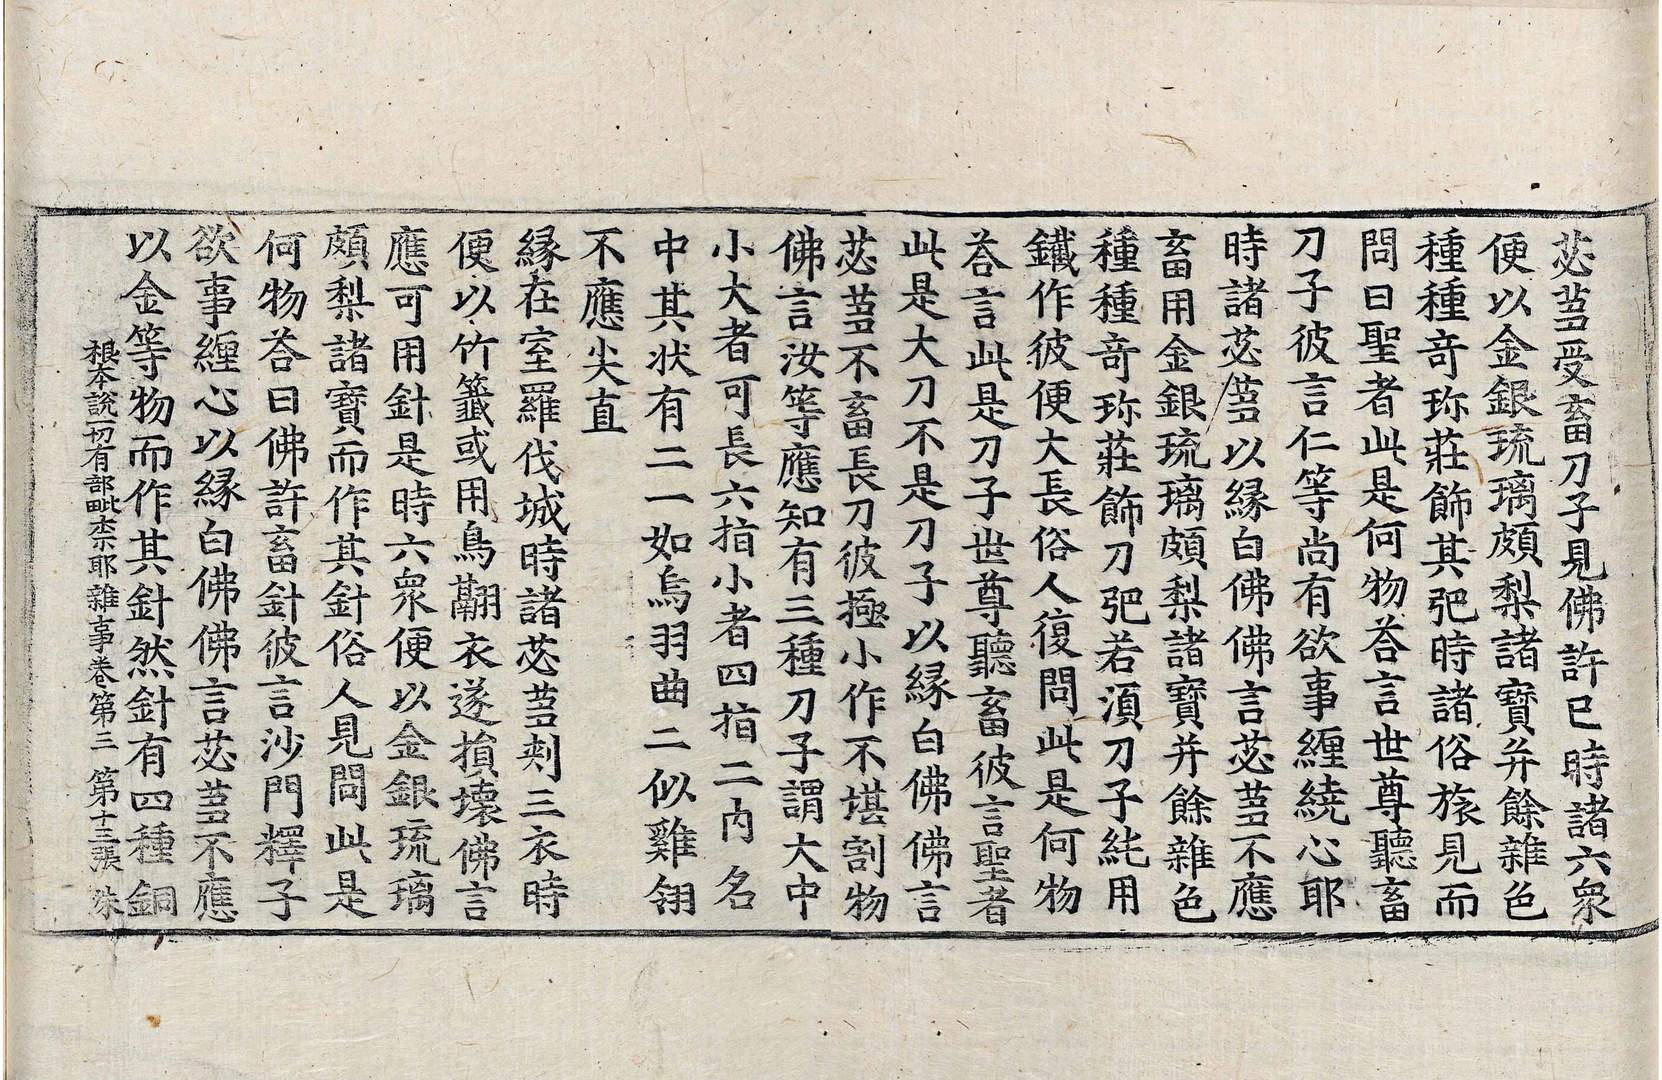 苾芻受畜刀子見佛許已時諸六衆
便以金銀琉璃頗梨諸寶并餘雜色
種種奇珎莊飾其弝時諸俗旅見而
問曰聖者此是何物荅言世尊聽畜
刀子彼言仁等尚有欲事纏繞心耶
時諸苾芻以縁白佛佛言苾芻不應
畜用金銀琉璃頗梨諸寶并餘雜色
種種奇珎莊飾刀弝若湏刀子純用
鐵作彼便大長俗人復問此是何物
荅言此是刀子世尊聽畜彼言聖者
此是大刀不是刀子以縁白佛佛言
苾芻不畜長刀彼極小作不堪割物
佛言汝等應知有三種刀子謂大中
小大者可長六指小者四指二内名
中其狀有二一如鳥羽曲二似雞翎
不應尖直
縁在室羅伐城時諸苾芻刾三衣時
便以竹籤或用鳥翮衣遂損壞佛言
應可用針是時六衆便以金銀琉璃
頗梨諸寶而作其針俗人見問此是
何物荅曰佛許畜針彼言沙門釋子
欲事纏心以縁白佛佛言苾芻不應
以金等物而作其針然針有四種銅
根本說一切有部毗柰耶雜事卷第三 第十三張 殊